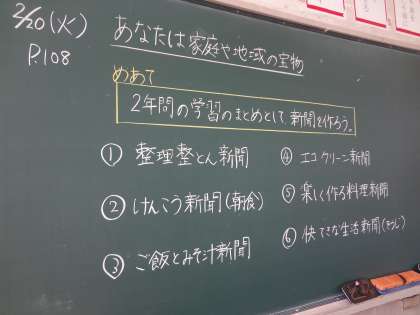 2/20(火)
P.108
あなたは家庭や地域の宝物
めあて
2年間の学習のまとめとして、新聞を作ろう。
① 整理整とん新聞
② けんこう新聞(朝食)
③ ご飯とみそ汁新聞
④ エコクリーン新聞
⑤ 楽しく作る料理新聞
⑥ 快てきな生活新聞(そうじ)